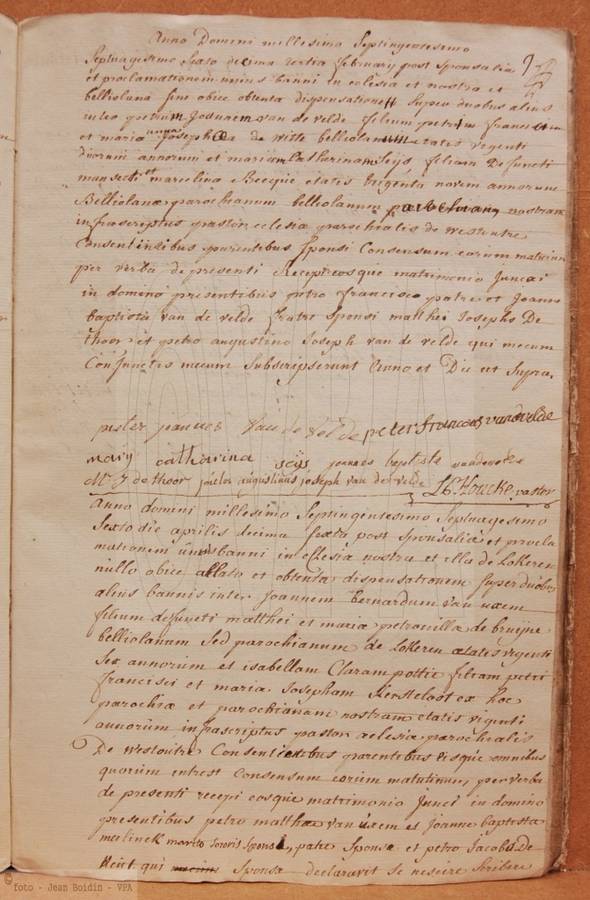 Anno Domini millesimo Septingentesimo
Septuagesimo Sexto decima tertia february post Sponsalia
et proclamationem unius banni in eclesia et nostra et
belliolana sine obice obtenta dispensatione super duobus aliis
inter petrum Joannem van de velde filium petri francisci
et maria Josepha de witte belliolanum etatis vigenti
duorum annorum et mariam Catharinam Seijs filiam defuncti
mansueti et marcelina Becque etatis trigenta novem annorum
Belliolana parochianum belliolanum parochianam nostram
infrascriptus pastor eclesia parochialis de westoutre
Consentientibus parentibus Sponsi Consensum eorum mutuum
per verba de presenti Recepi eosque matrimonio Junxi
in domino presentibus petro francisco patre et Joanne
baptista van de velde fratre Sponsi matthei Josepho De
thoor et petro augustino Joseph van de velde qui mecum
Conjunctis mecum Subscripserunt Anno et Die ut Supra.
pieter joannes van de velde peter francois vandevelde
mary catharina seijs joannes baptiste vandevelde
M J dethoor pieter augustinus joseph van der velde J B Houcke pastor
anno domini millesimo Septingentesimo Septuagesimo
Sexto die aprilis decima Sexta post Sponsalia et procla
mationem unius banni in eclesia nostra et illa de Lokeren
nullo obice allato et obtenta dispensationem super duobus
aliis bannis inter Joannem bernardum van uxem
filium defuncti matthei et maria petronilla de bruijne
belliolanum Sed parochianum de Lokeren aetatis vigenti
Sex annorum et isabellam Claram pottie filiam petri
francisci et maria Josepham Kersteloot ex hac
parochia et parochianam nostram etatis vigenti
annorum infrascriptus pastor aeclesia parochialis
De westoutre Consentientibus parentibus Usque omnibus
quorum intrest Consensum eorum mutuum, per verba
de presenti recepi eosque matrimonio Junxi in domino
presentibus petro matthaeo van uxem et Joanne baptista
meulinck marito Sororis Sponsi, patre Sponsa et petro Jacobo De
Keut qui Sponsa declaravit se nescire Scribere
© foto - Jean Boidin - VPA